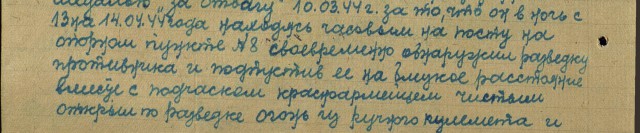 медалью "За отвагу" 10.03.44 г. за то, что он в ночь с
13 на 14.04.44 года находясь часовым на посту на
опорном пункте №8 своевременно обнаружил разведку
противника и подпустив ее на близкое расстояние
вместе с подчаском красноармейцем Чистым
открыл по разведке огонь из ручного пулемета и